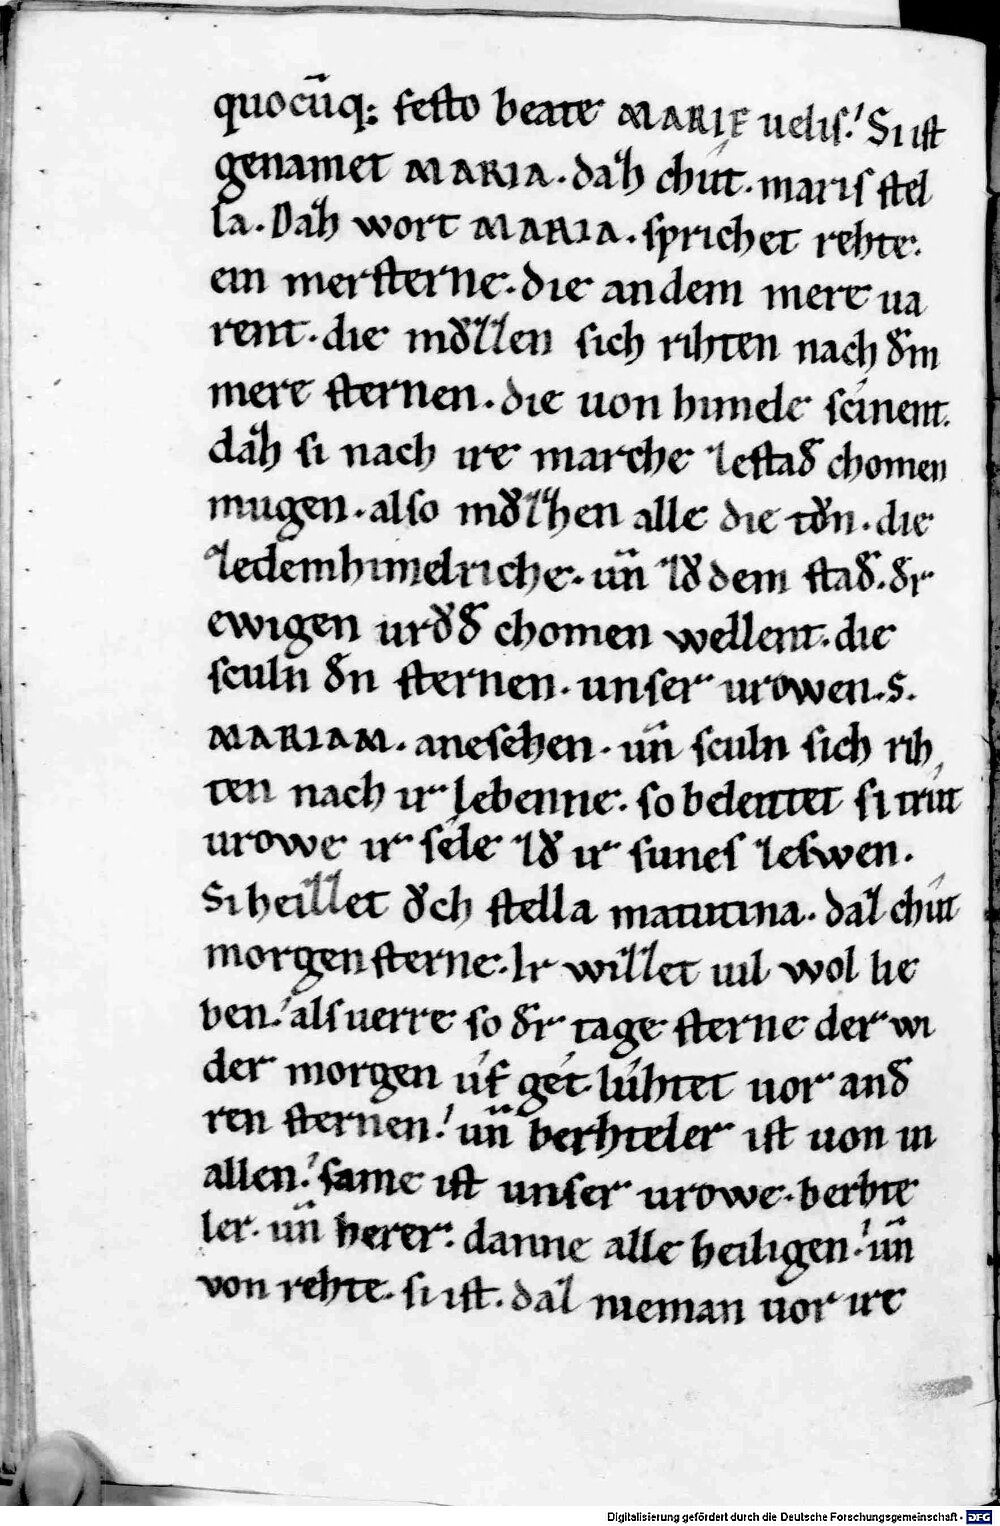 quocūq; festo beate MARIE uelis. Si ist
genamet MARIA. daꝫh chút. maris stel
la. Daꝫh wort MARIA. sprichet rehte.
ein mersterne. die an dem mere ua
rent. die mꝍzzen sich rihten nach dͦm
mere sternen. die uon himele scinent.
daꝫh si nach ire marche zestad chomen
mugen. also mꝍzhen alle die tꝍn. die
zedemhimelriche. un̄ zꝍ dem stad. dͦr
ewigen urꝍd chomen wellent. die
sculn dͦn sternen. unser urowen. S.
MARIAM. anesehen. un̄ sculn sich rih
ten nach ir lebenne. so beleittet si trút
urowe ir sele zꝍ ir sunes zeswen.
Si heizzet ꝍch stella matutina. daz chút
morgensterne. Ir wizzet uil wol lie
ben. als uerre so dͦr tage sterne der wi
der morgen úf gét lúhtet uor and
ren sternen. un̄ berhteler ist uon in
allen. same ist unser urowe. berhte
ler. un̄ herer. danne alle heiligen. un̄
von rehte. si ist. daz nieman uor ire
Digitalisierung gefördert durch die Deutsche Forschungsgemeinschaft - DFG